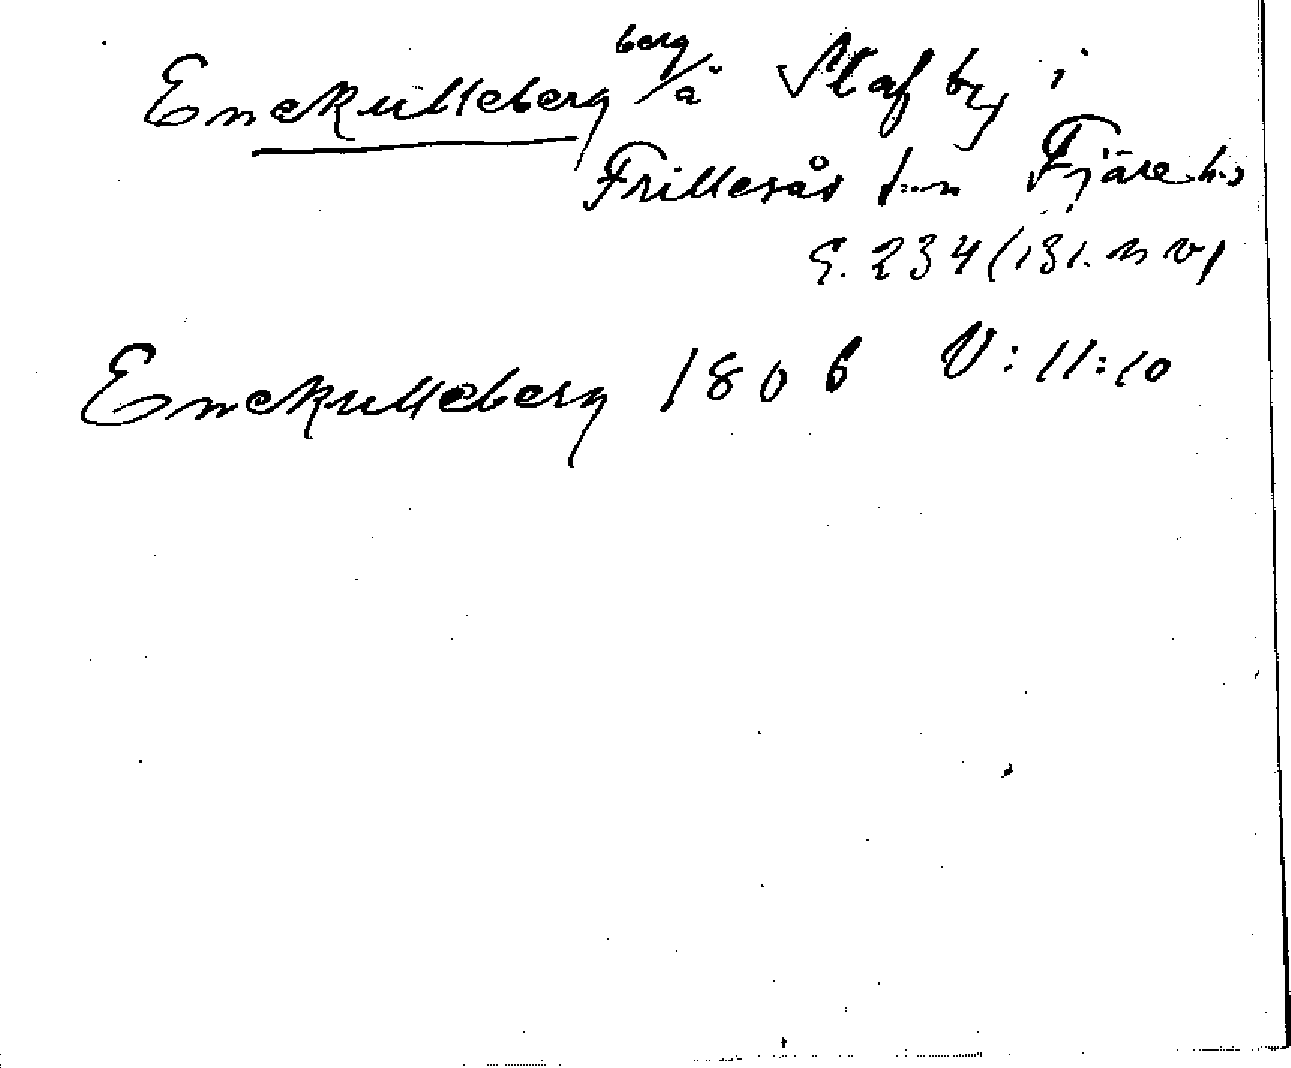 Enekulleberg berg/ä Staf by i
Frillesås s:n Fjäre h.
S. 234 (131. n v)
Enekulleberg 1806 V:11:10